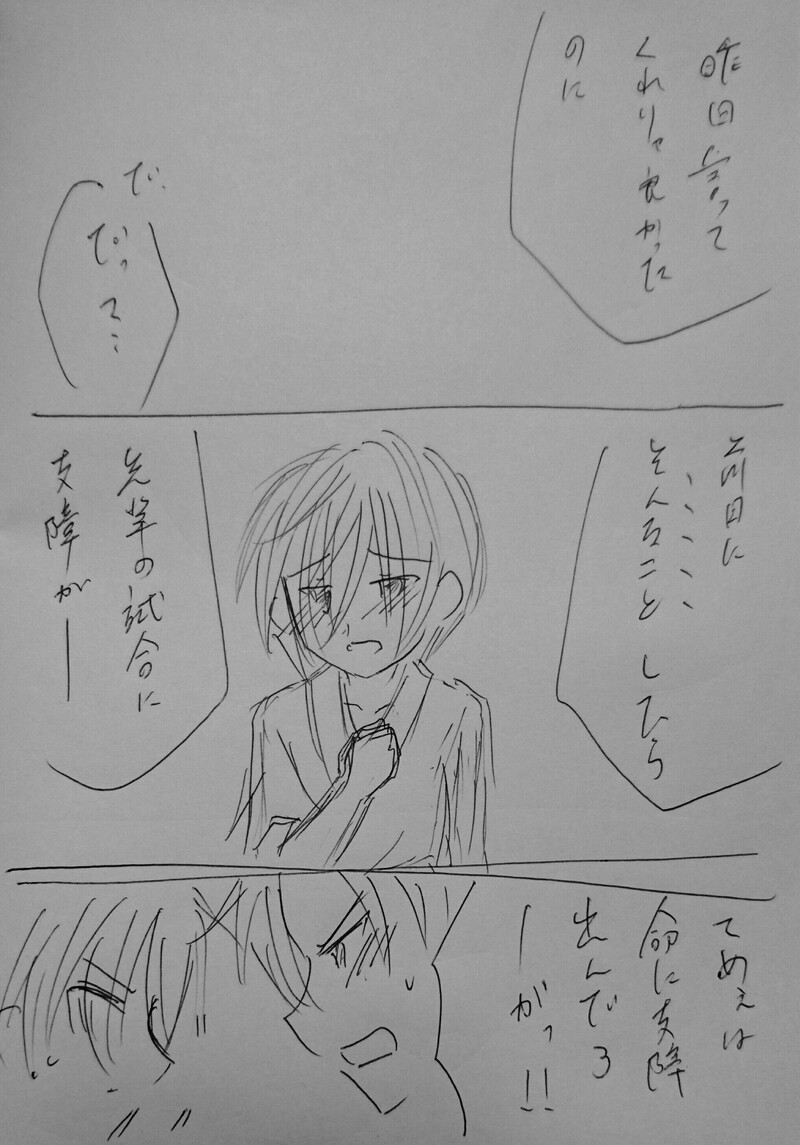 昨日言って
くれりゃ良かった
のに
で、
だって…
前日に
そんなことしたら
先輩の試合に
支障が―
てめぇは
命に支障
出んだろ
ーがっ!!